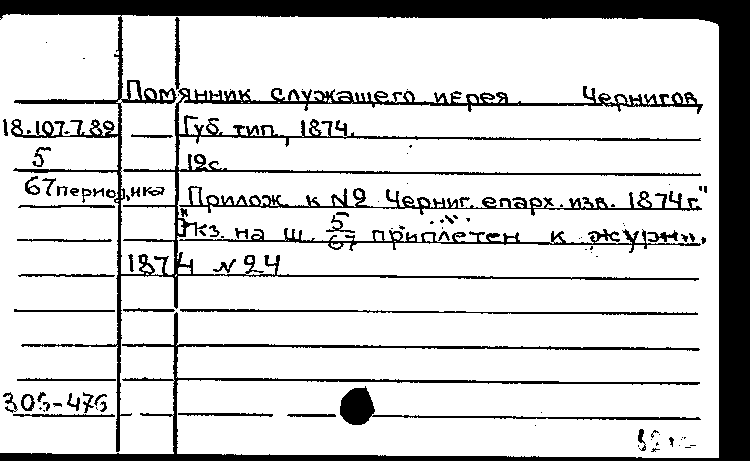 Помянник служащего иерея. Чернигов,
18.107.7.89 Губ. тип., 1874.
5 12с.
67 периодика Прилож. к №2 Черниг. епарх. изв. 1874г."
Экз. на ш. 5/67 приплетен к журн.
1874 №24
305-476